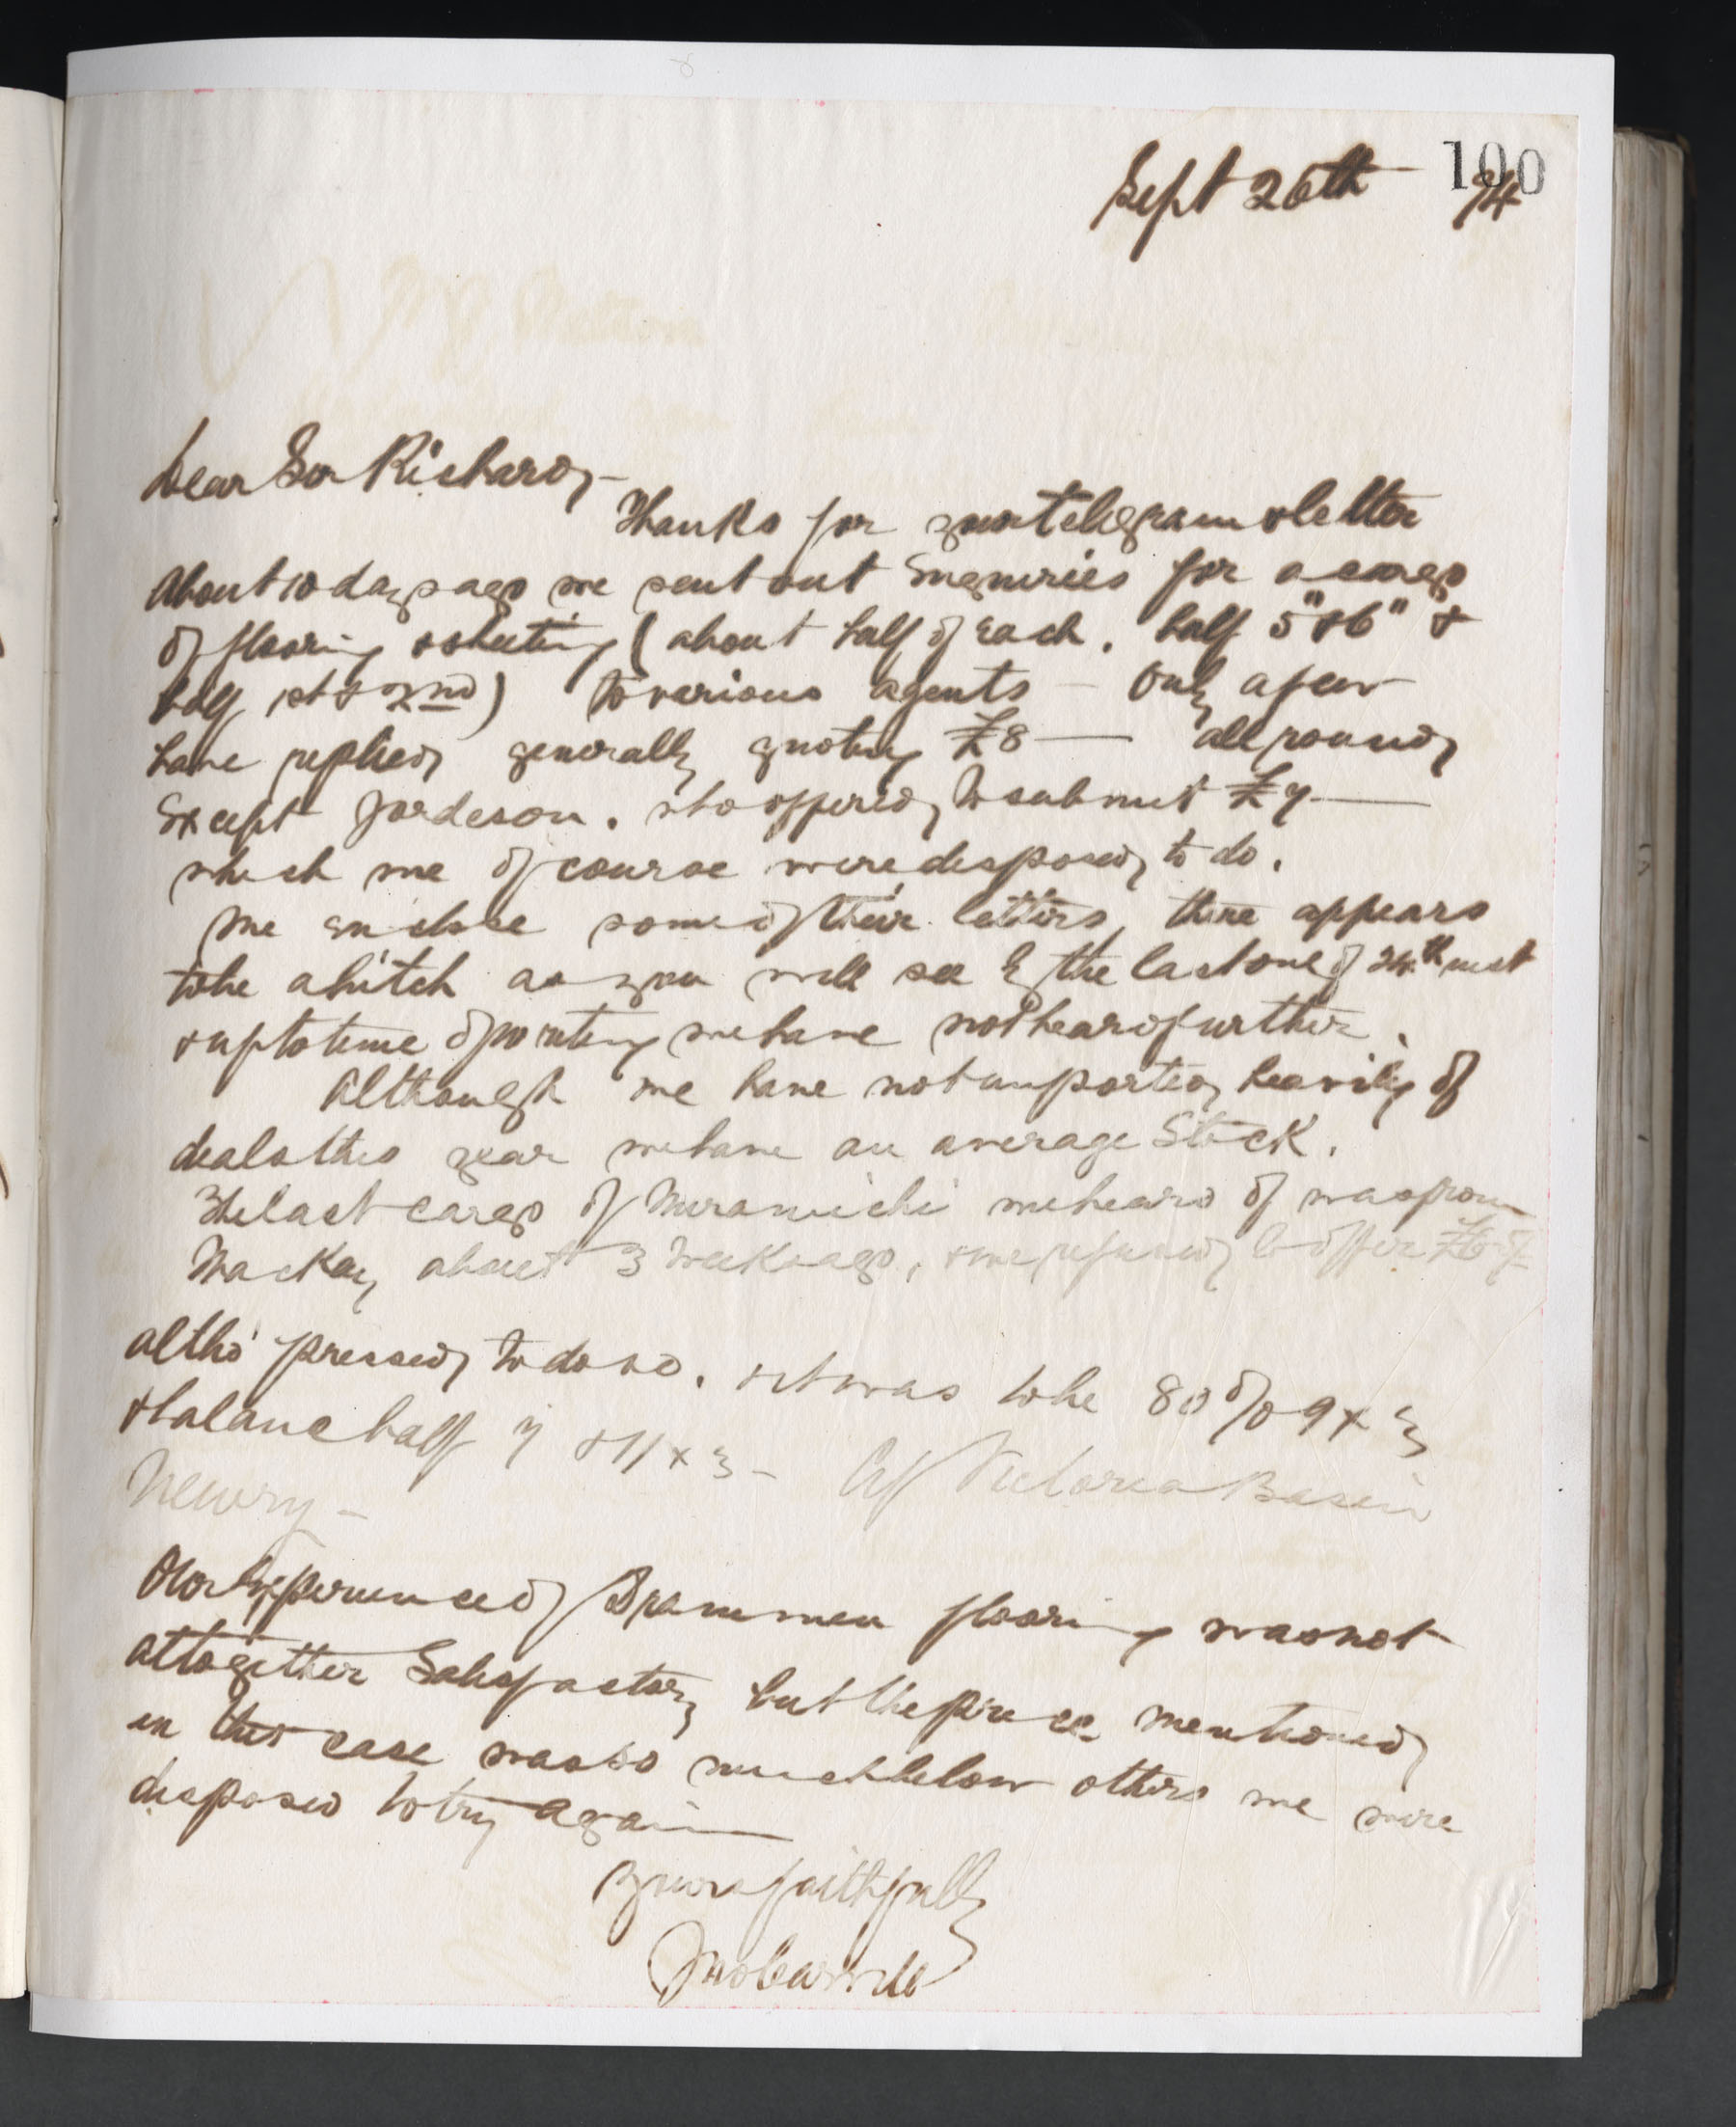 100
Sept 26th 94
Dear Sir Richard,
Thanks for your telegram & letter
About 10 days ago we sent out Enquiries for a cargo
of flooring & sheeting (about half of each. half 5" & 6" &
half 1st & 2nd) to various agents — Only a few
have replied generally quoting £8 — all round,
Except Jordeson. who offered to submit £7 —
which we of course were disposed to do.
We enclose some of their letters, there appears
to be a hitch as you will see by the last one of 24th inst
& up to time of writing we have not heard further.
Although we have not imported heavily of
deals this year we have an average Stock.
The last cargo of Miramichi we heard of was from
Mackay about 3 Weeks ago, & we refused to offer
altho' pressed to do so. & it was to be 80% 9 x 3
& balance half 7 & 11 x 3 — Cif Victoria Basin
Newry —
Our Experience of Drammen flooring was not
altogether Satisfactory but the price mentioned
in this case was so much below others we were
disposed to try again —
Yours faithfully
Jno Carvill